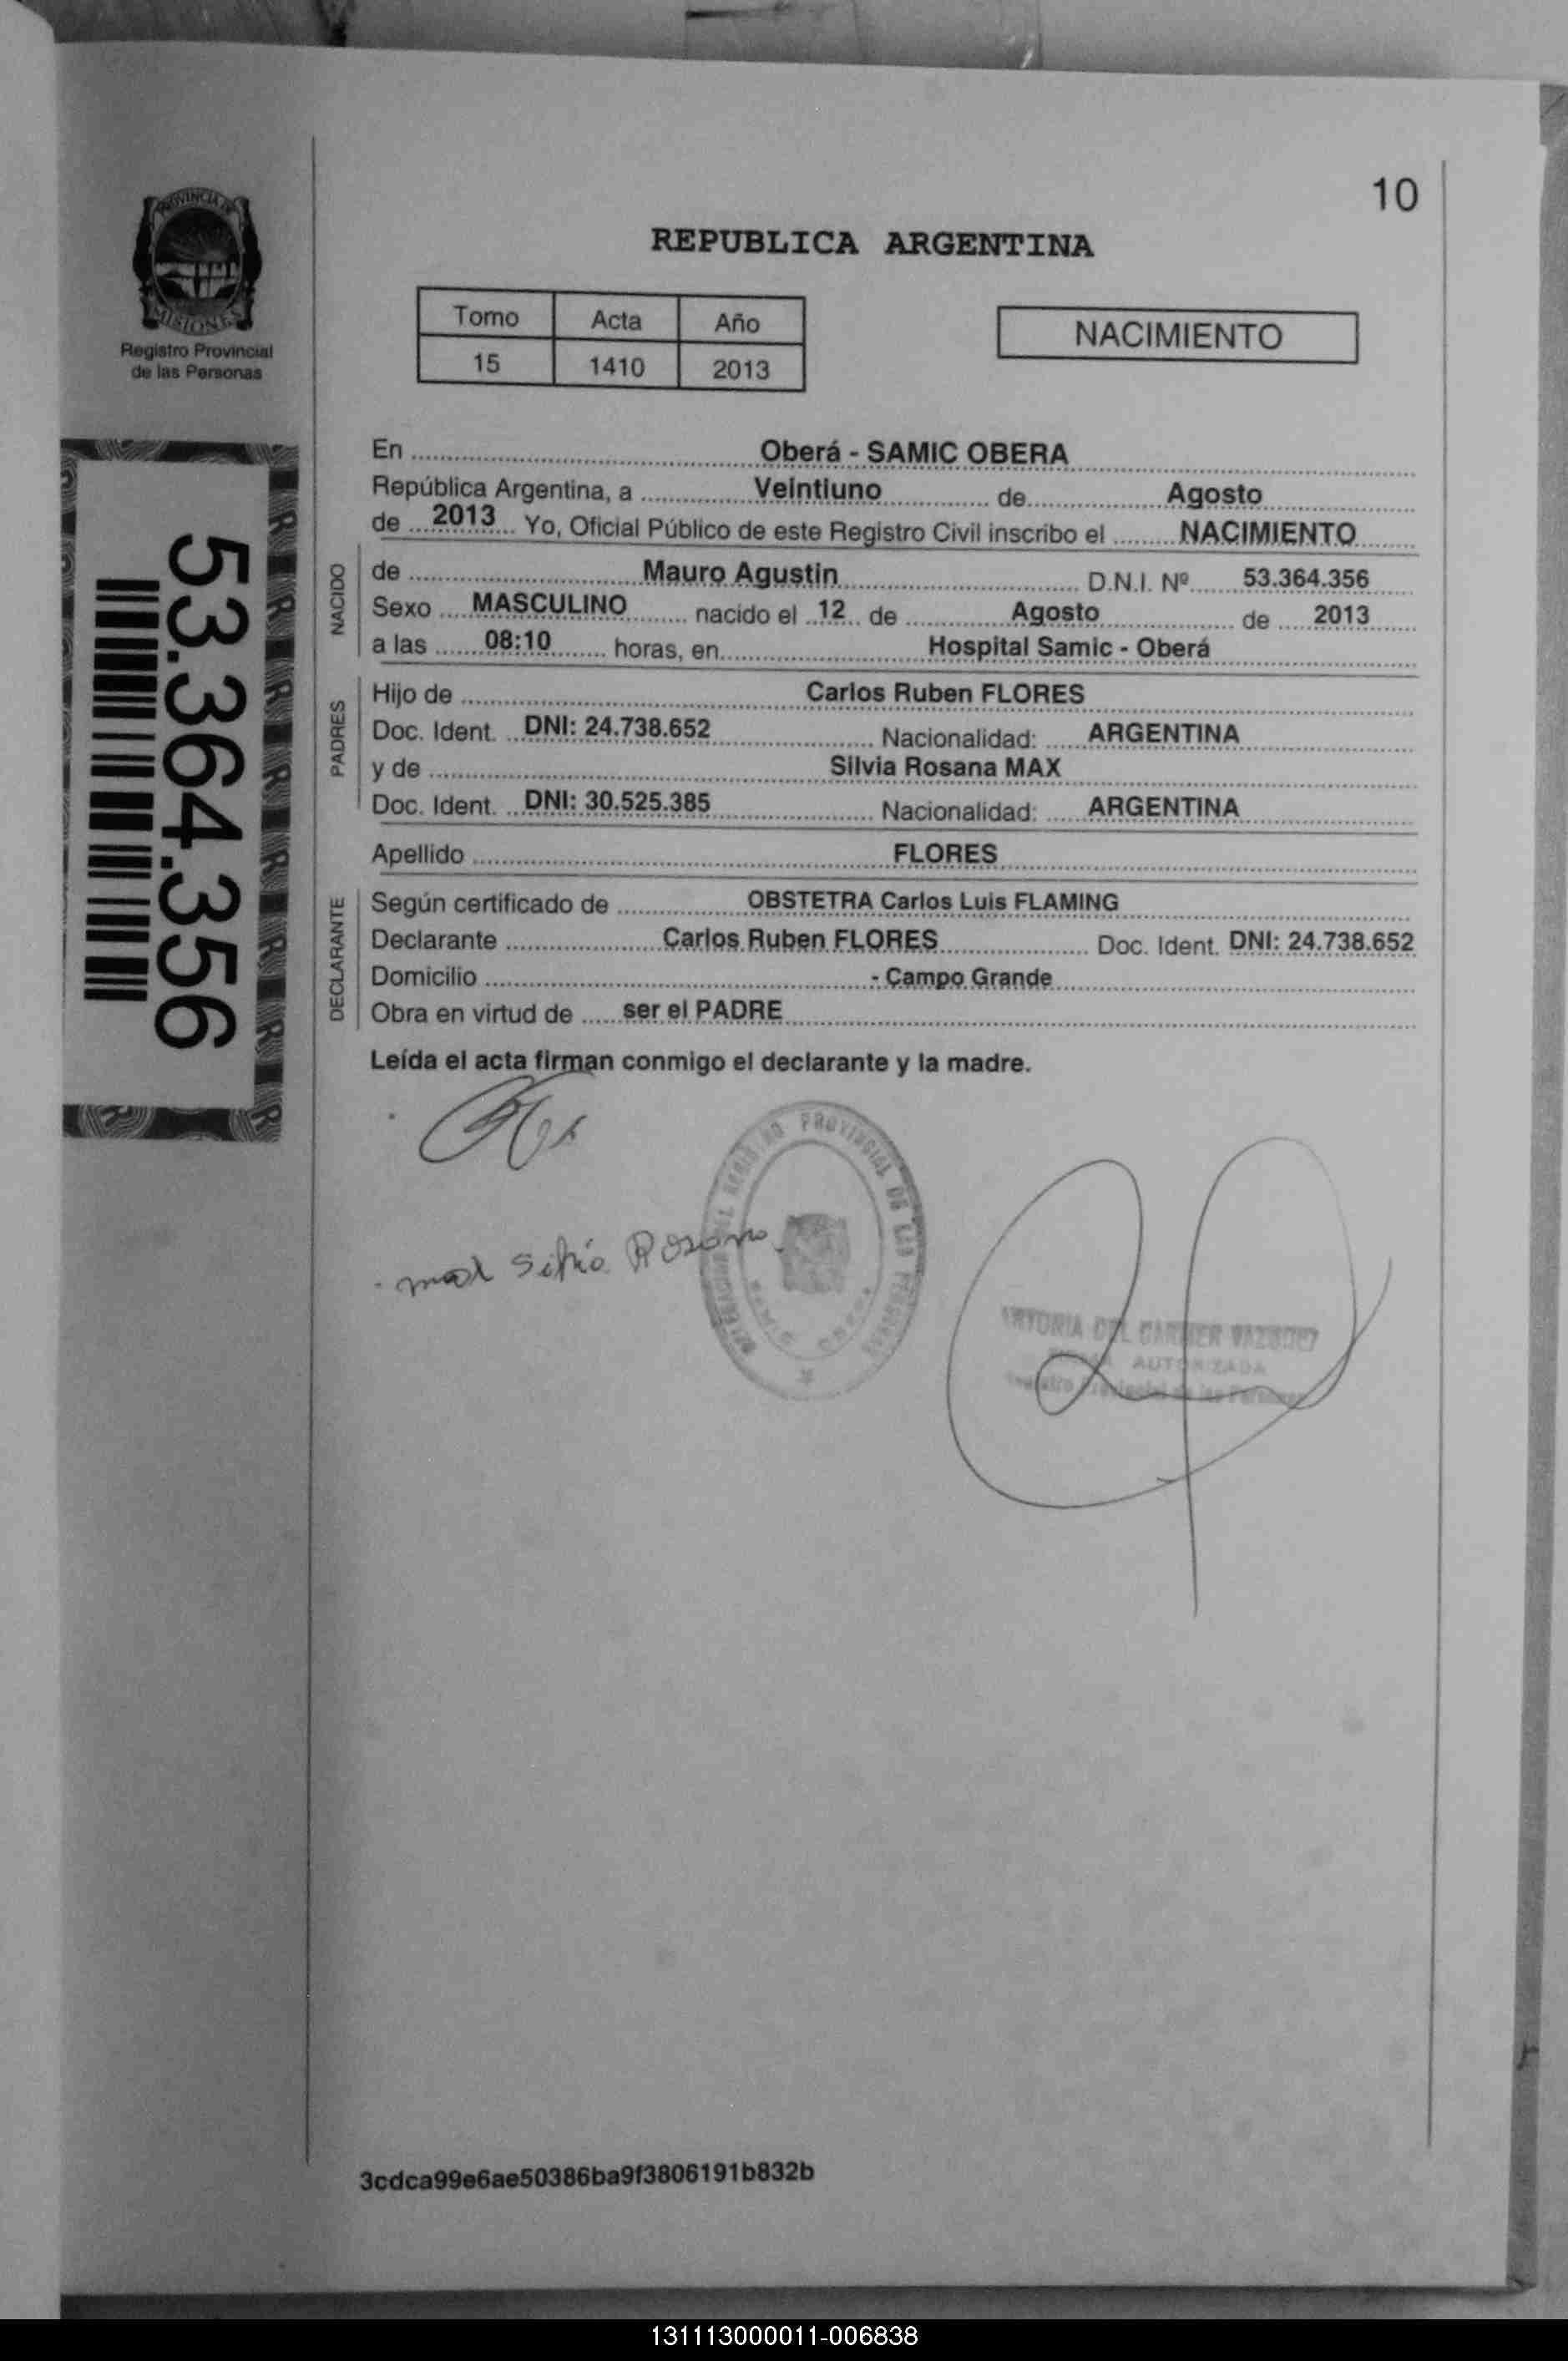 10
PROVINCIA DE
MISIONES
Registro Provincial
de las Personas
53.364.356
REPUBLICA ARGENTINA
Tomo Acta Año
15 1410 2013
NACIMIENTO
En Oberá - SAMIC OBERA
República Argentina, a Veintiuno de Agosto
de 2013 Yo, Oficial Público de este Registro Civil inscribo el NACIMIENTO
NACIDO
de Mauro Agustin D.N.I. Nº 53.364.356
Sexo MASCULINO nacido el 12 de Agosto de 2013
a las 08:10 horas, en Hospital Samic - Oberá
PADRES
Hijo de Carlos Ruben FLORES
Doc. Ident. DNI: 24.738.652 Nacionalidad: ARGENTINA
y de Silvia Rosana MAX
Doc. Ident. DNI: 30.525.385 Nacionalidad: ARGENTINA
Apellido FLORES
DECLARANTE
Según certificado de OBSTETRA Carlos Luis FLAMING
Declarante Carlos Ruben FLORES Doc. Ident. DNI: 24.738.652
Domicilio - Campo Grande
Obra en virtud de ser el PADRE
Leída el acta firman conmigo el declarante y la madre.
PROVINCIAL DE LAS PERSONAS
DEL CARMEN
AUTORIZADA
Provincial de las Personas
3cdca99e6ae50386ba9f3806191b832b
131113000011-006838